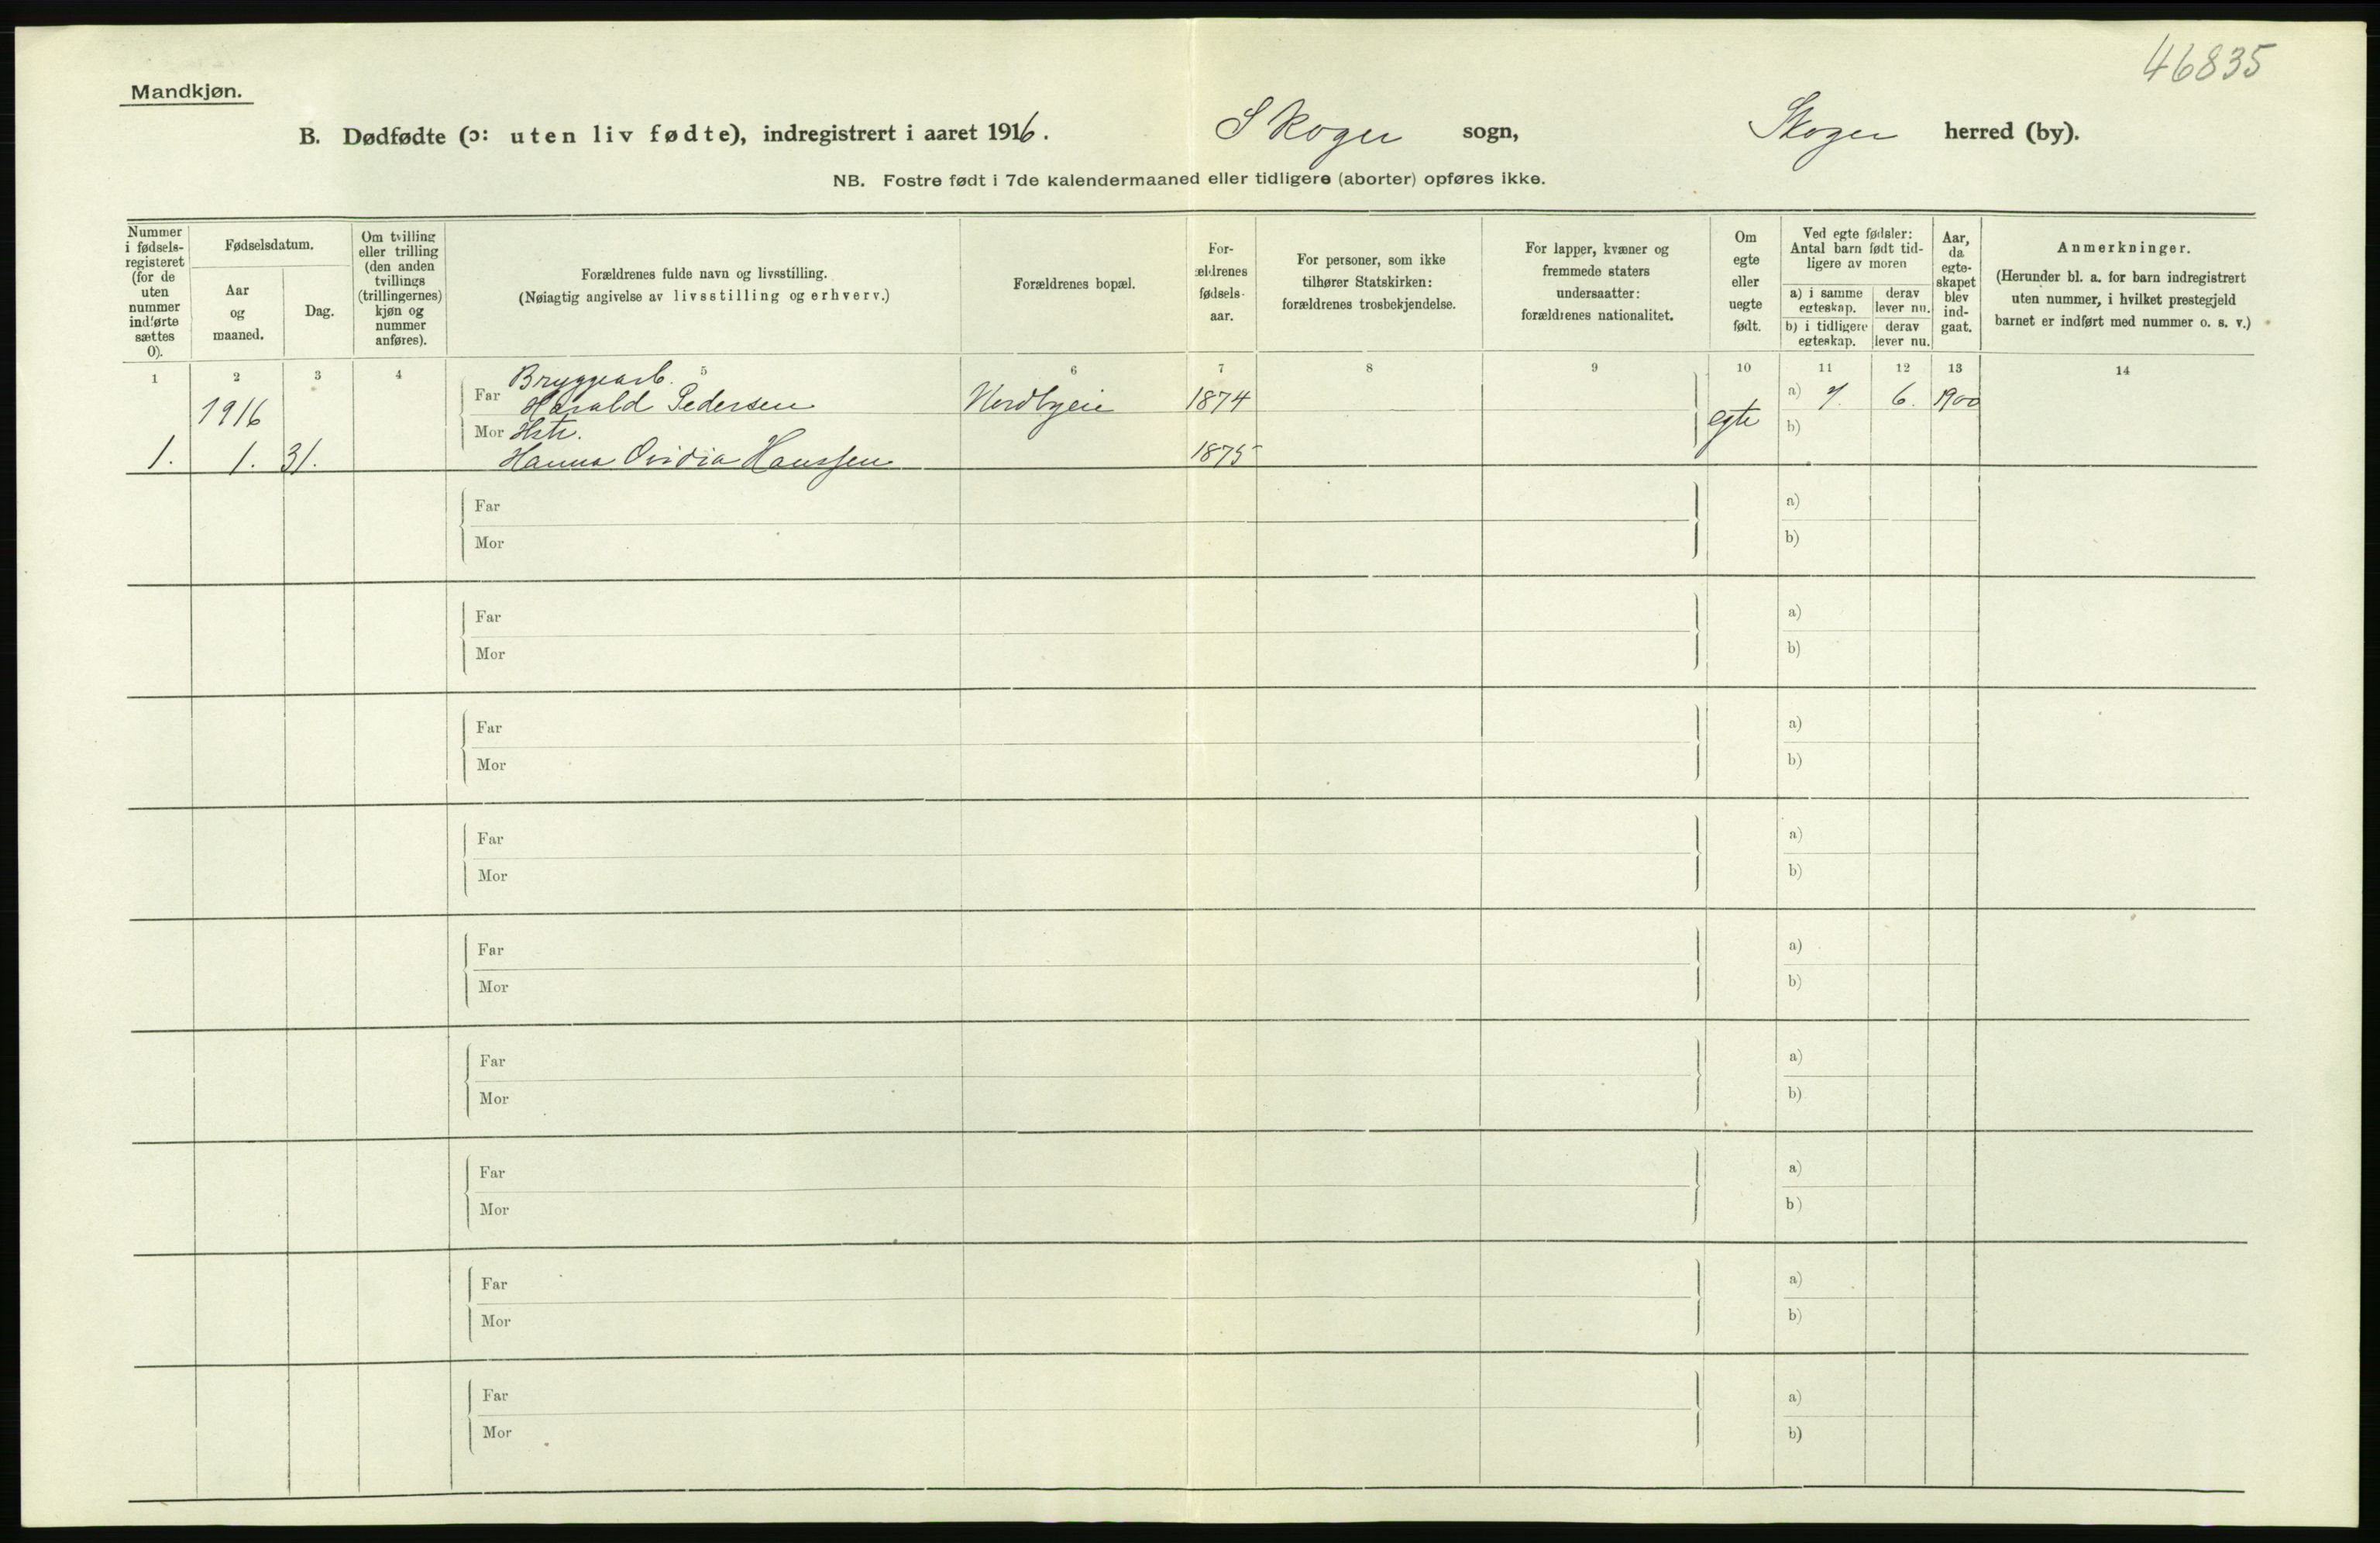 46835
Mandkjøn.
B. Dødfødte (ɔ: uten liv fødte), indregistrert i aaret 1916. Skoger sogn, Skoger herred (by).
NB. Fostre født i 7de kalendermaaned eller tidligere (aborter) opføres ikke.
Nummer i fødsels-registeret (for de uten nummer indførte sættes 0).
Fødselsdatum.
Aar og maaned.
Dag.
Om tvilling eller trilling (den anden tvillings (trillingernes) kjøn og nummer anføres).
Forældrenes fulde navn og livsstilling.
(Nøiagtig angivelse av livsstilling og erhverv.)
Forældrenes bopæl.
For-ældrenes fødsels-aar.
For personer, som ikke tilhører Statskirken: forældrenes trosbekjendelse.
For lapper, kvæner og fremmede staters undersaatter: forældrenes nationalitet.
Om egte eller uegte født.
Ved egte fødsler: Antal barn født tid-ligere av moren
a) i samme egteskap.
derav lever nu.
b) i tidligere egteskap.
derav lever nu.
Aar, da egte-skapet blev ind-gaat.
Anmerkninger.
(Herunder bl. a. for barn indregistrert uten nummer, i hvilket prestegjeld barnet er indført med nummer o. s. v.)
1 2 3 4 5 6 7 8 9 10 11 12 13 14
Bryggearb.
1916 Far Harald Pedersen Nordbyeie 1874 egte a) 7. 6. 1900
Mor Hstr. b)
1. 1. 31. Hanna Ovidia Hanssen 1875
Far a)
Mor b)
Far a)
Mor b)
Far a)
Mor b)
Far a)
Mor b)
Far a)
Mor b)
Far a)
Mor b)
Far a)
Mor b)
Far a)
Mor b)
Far a)
Mor b)